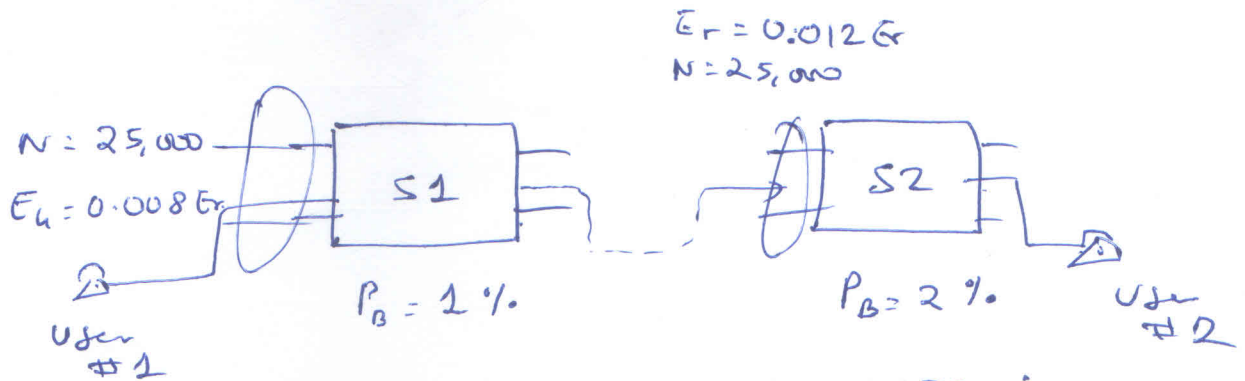 Er = 0.012 Er
N = 25,000
N = 25,000
Eu = 0.008 Er
S1
S2
PB = 1 %.
PB = 2 %.
User
#1
User
#2